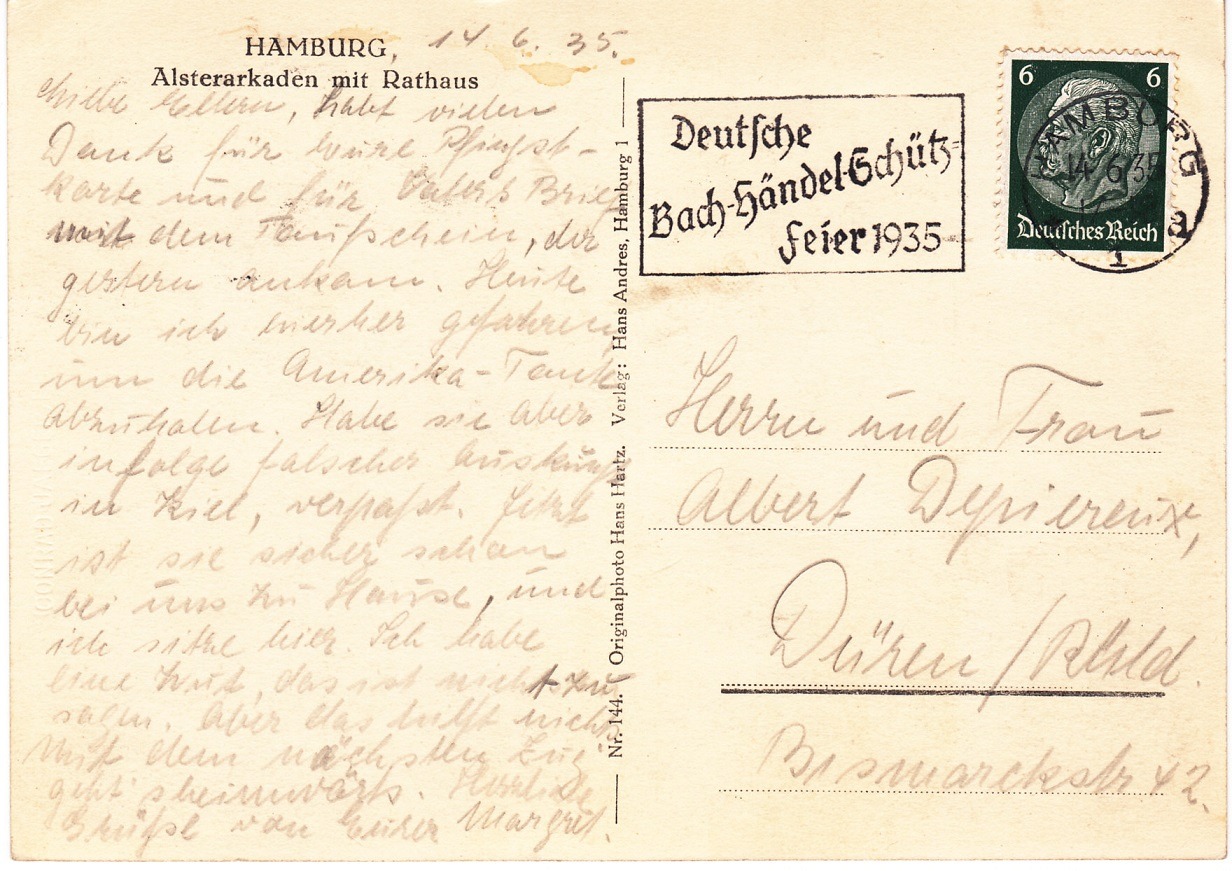 HAMBURG, 14. 6. 35.
Alsterarkaden mit Rathaus
Liebe Eltern, habt vielen
Dank für Eure Pfingst-
karte und für Vaters Brief
mit dem Taufschein, der
gestern ankam. Heute
bin ich hierher gefahren
um die Amerika-Tante
abzuholen. Habe sie aber
infolge falscher Auskunft
in Kiel, verpaßt. Jetzt
ist sie sicher schon
bei uns zu Hause, und
ich sitze hier. Ich habe
eine Wut, das ist nicht zu
sagen. Aber das hilft nichts
Mit dem nächsten Zug
geht's heimwärts. Herzliche
Grüße von Eurer Margret.
Nr. 144. Originalphoto Hans Hartz. Verlag: Hans Andres, Hamburg 1
Deutsche
Bach-Händel-Schütz-
Feier 1935
6 6
Deutsches Reich
HAMBURG
14.6.35
1
Herrn und Frau
Albert Depiereux,
Düren / Rhld.
Bismarckstr 42.